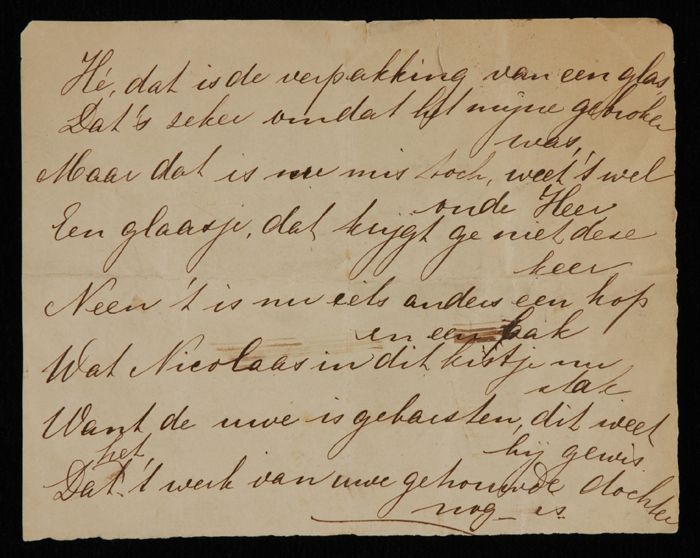 Hé, dat is de verpakking van een glas
Dat's zeker omdat het mijne gebroken
was,
Maar dat is nu mis toch, weet 't wel
oude Heer
Een glaasje, dat krijgt ge niet deze
keer
Neen 't is nu eits anders een kop
en een bak
Wat Nicolaas in dit kistje nu
stak
Want de uwe is gebarsten, dit weet
hij gewis
het
Dat 't werk van uwe getrouwde dochter
nog is